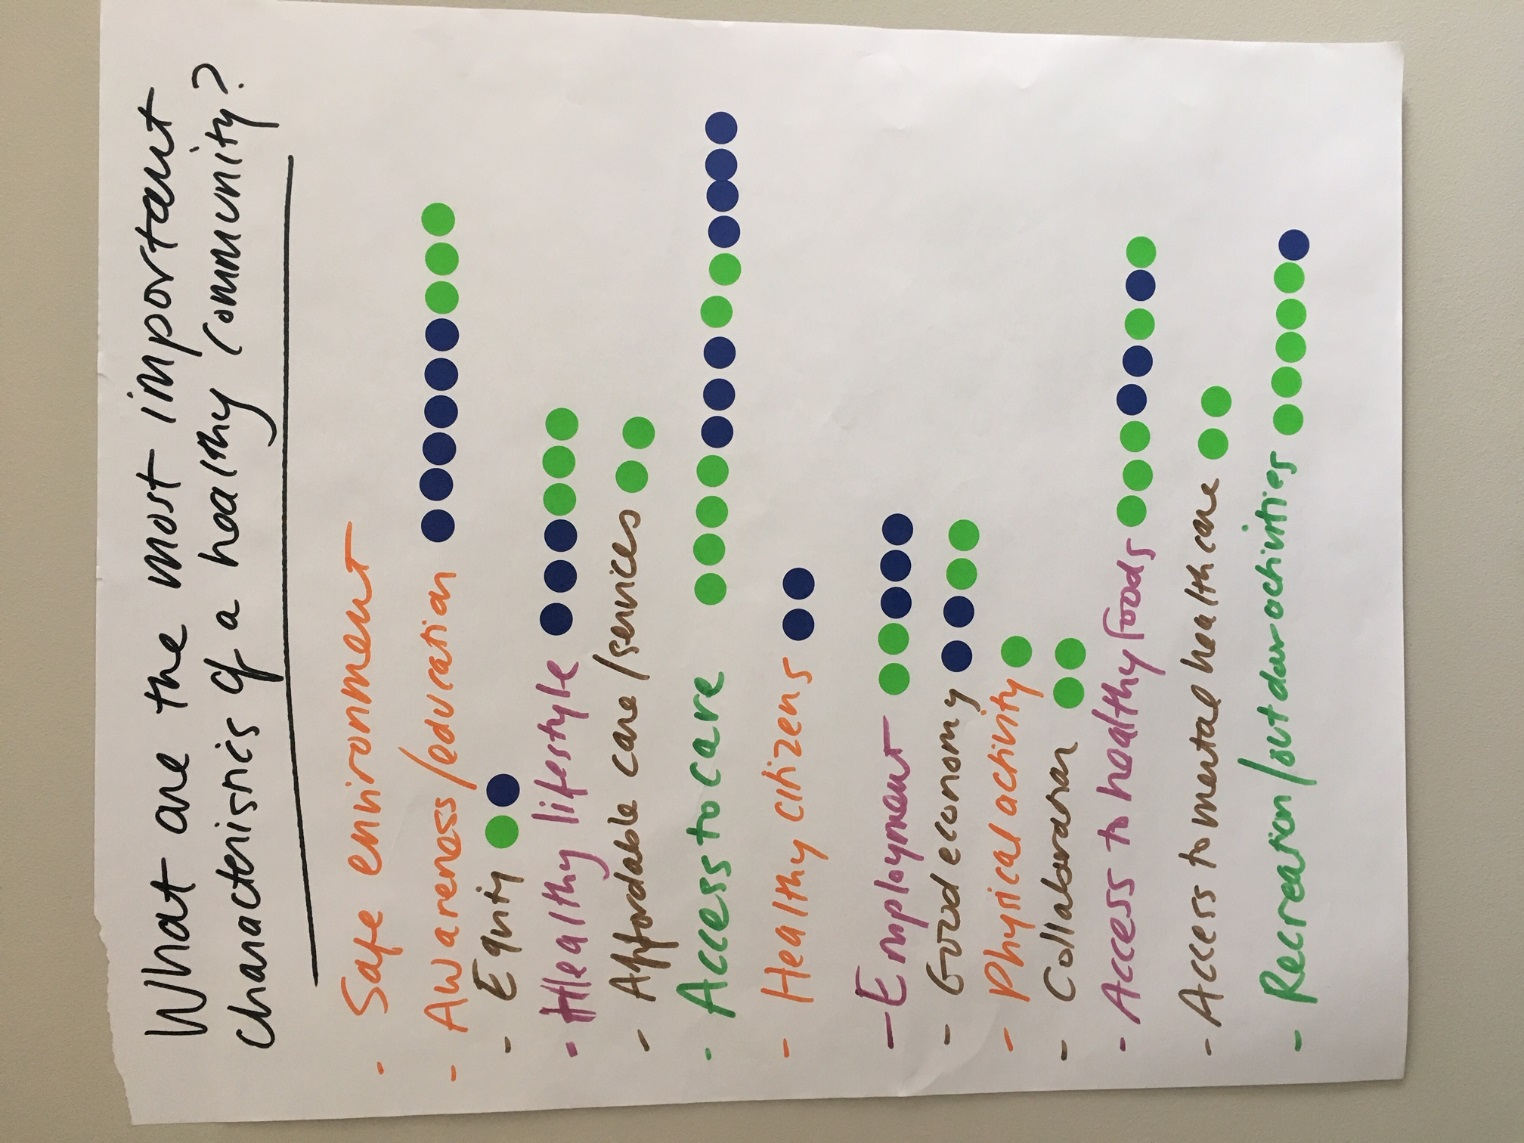 What are the most important
characteristics of a healthy community?
- Safe environment -
- Awareness/education
- Equity
- Healthy lifestyle
- Affordable care/services
- Access to care
- Healthy citizens
- Employment
- Good economy
- Physical activity
- Collaboration
- Access to healthy foods
- Access to mental health care
- Recreation/outdoor activities